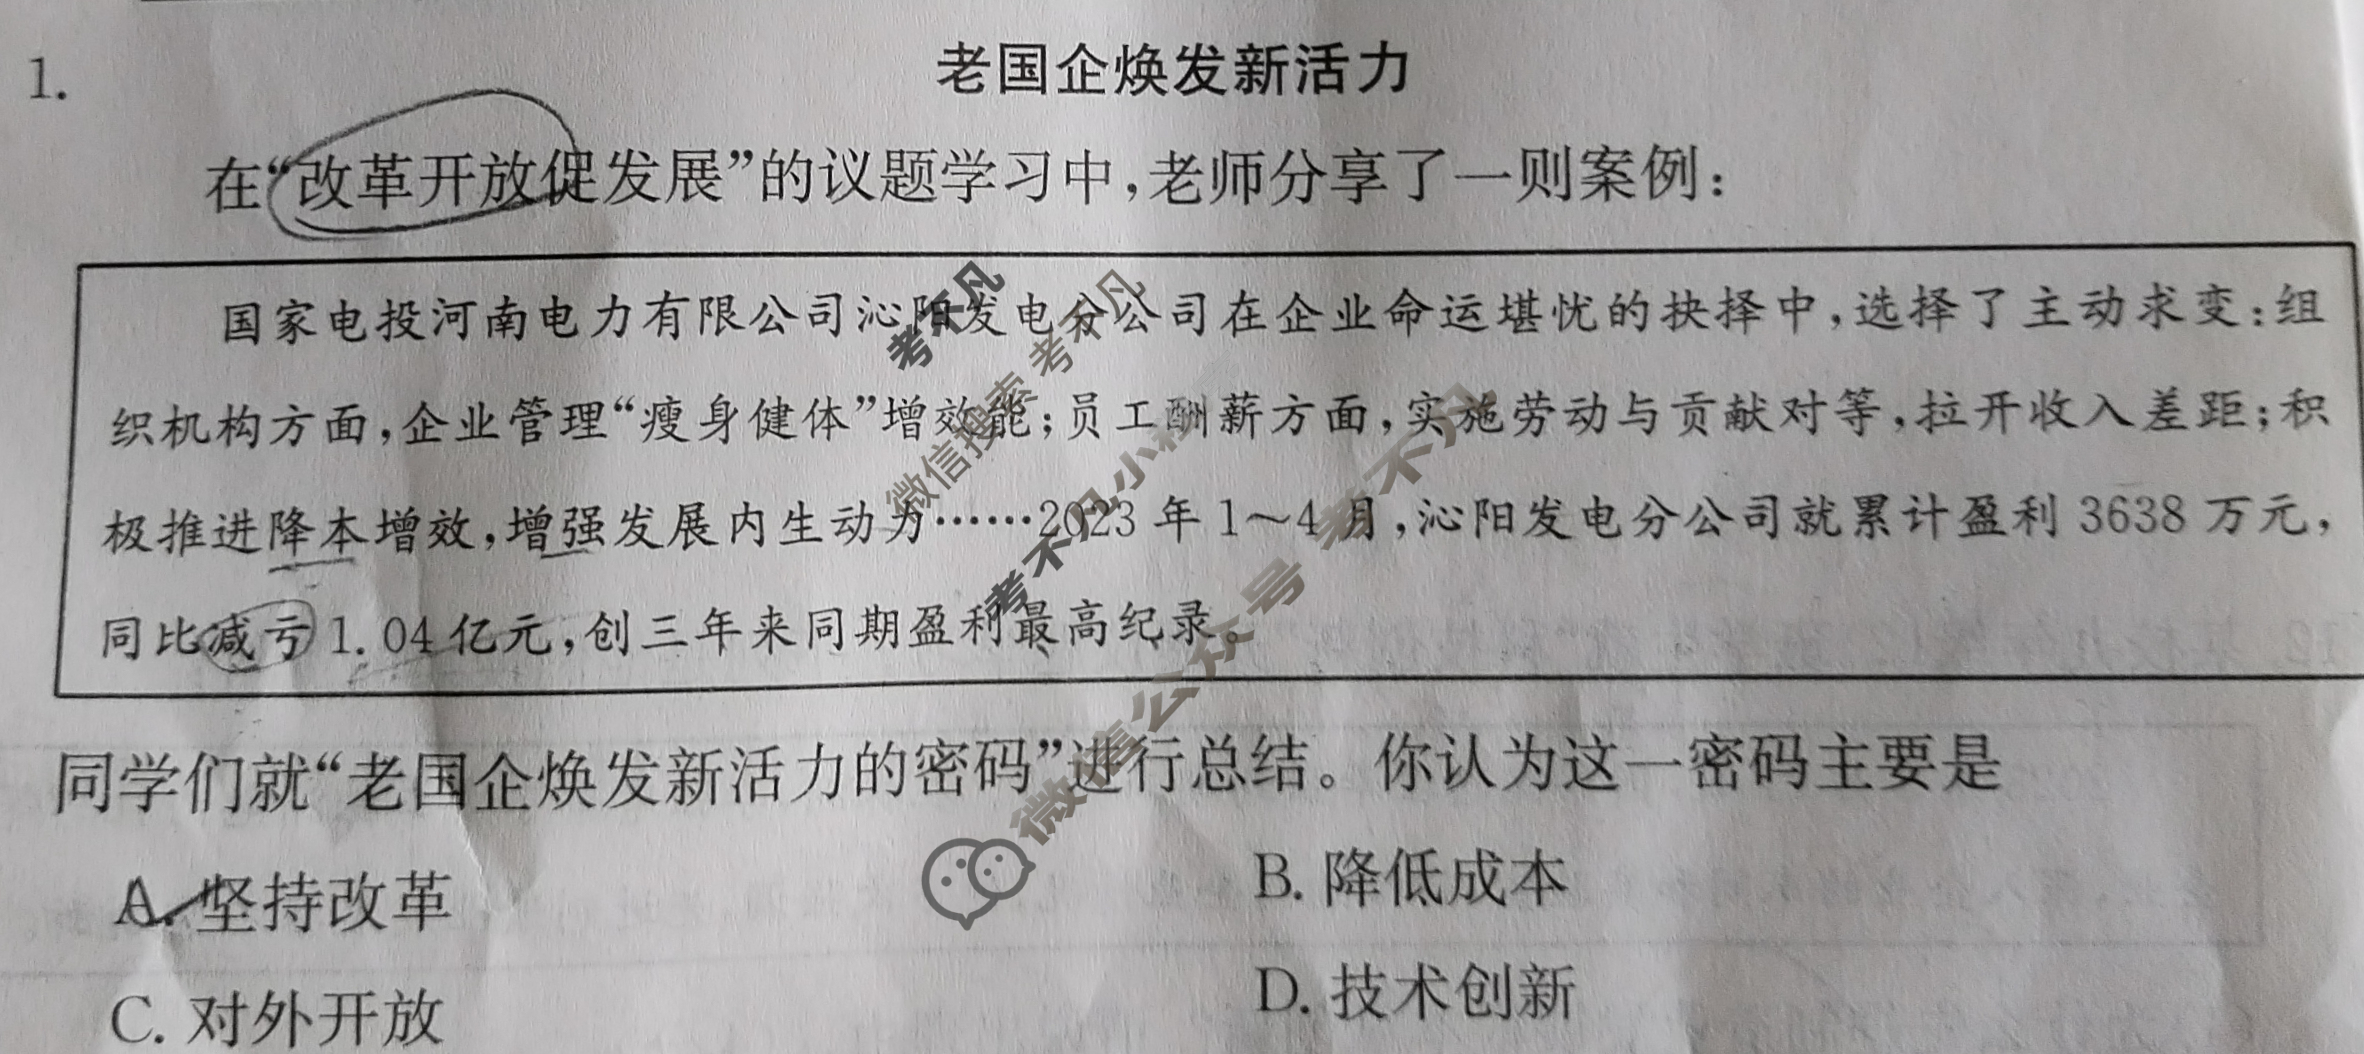 1.
老国企焕发新活力
在“改革开放促发展”的议题学习中，老师分享了一则案例：
国家电投河南电力有限公司沁阳发电分公司在企业命运堪忧的抉择中，选择了主动求变：组
织机构方面，企业管理“瘦身健体”增效能；员工酬薪方面，实施劳动与贡献对等，拉开收入差距；积
极推进降本增效，增强发展内生动力……2023年1～4月，沁阳发电分公司就累计盈利3638万元，
同比减亏1.04亿元，创三年来同期盈利最高纪录。
同学们就“老国企焕发新活力的密码”进行总结。你认为这一密码主要是
A. 坚持改革
B. 降低成本
C. 对外开放
D. 技术创新
考不凡
微信搜索 考不凡
考不凡小程
微信公众号 考不凡